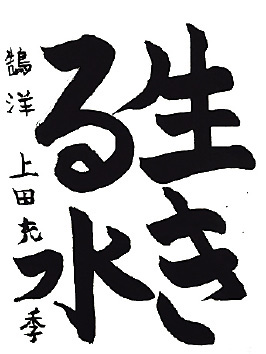 生き
る水
鵠洋 上田充季